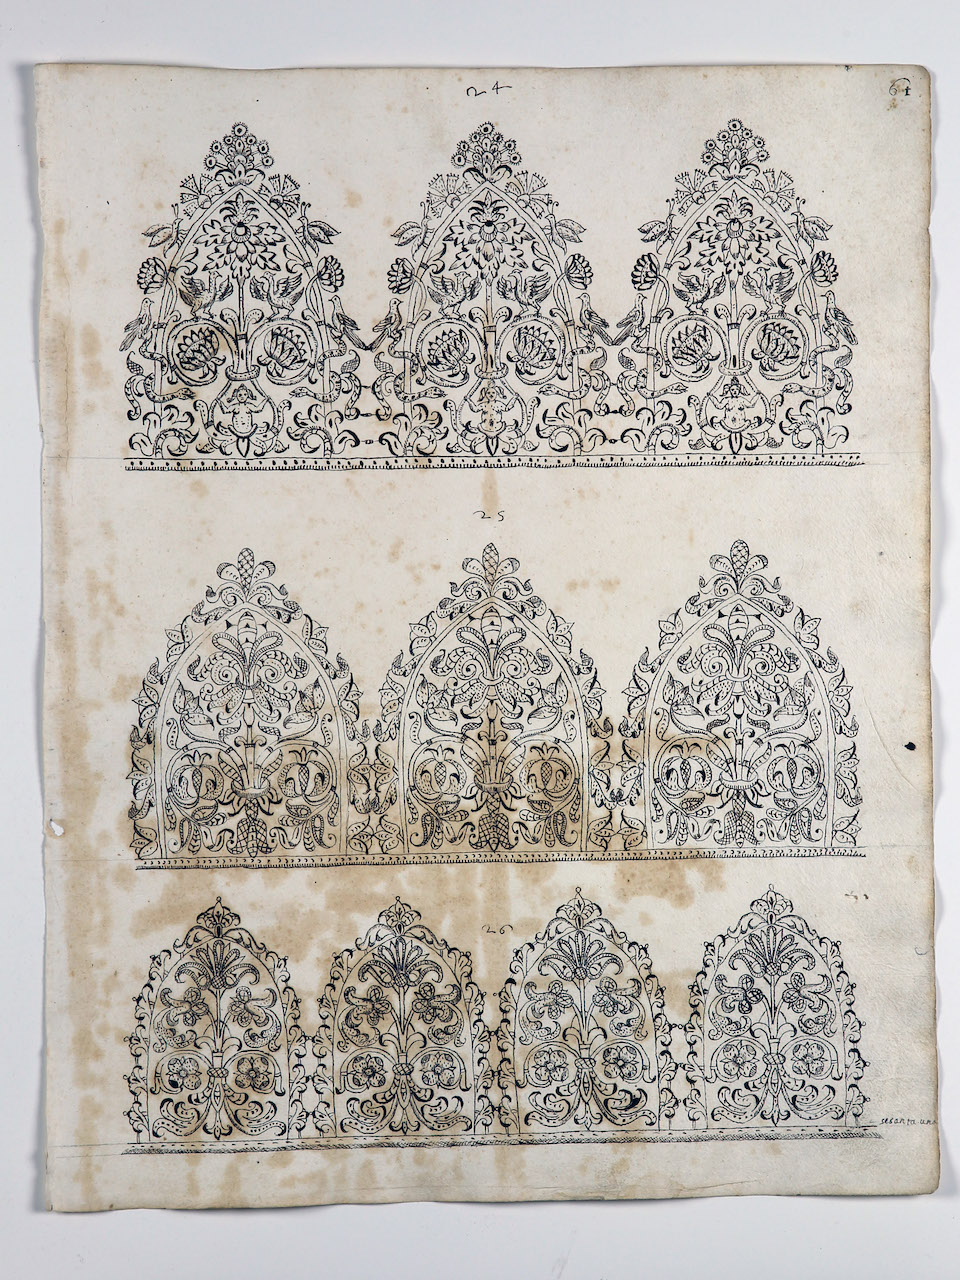 24
61
25
26
sesanta una